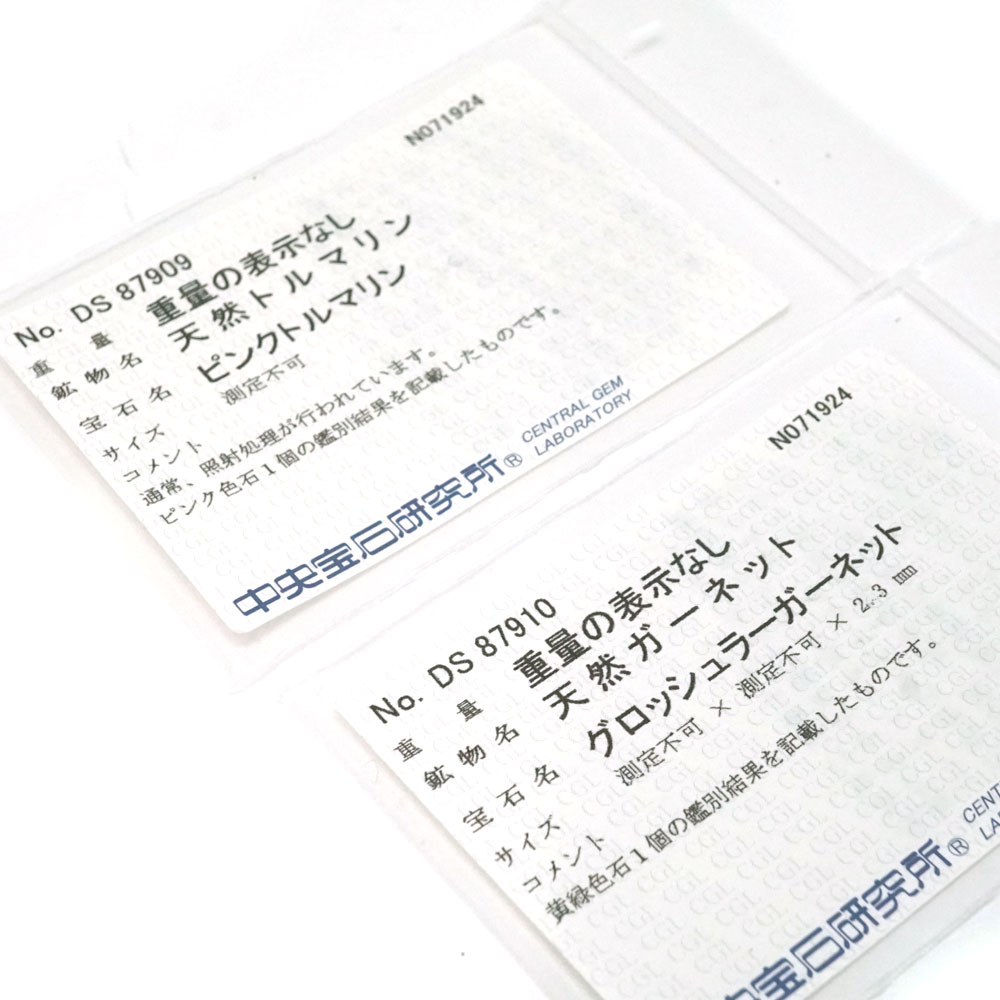 N071924
No. DS 87909
重量 重量の表示なし
鉱物名 天然トルマリン
宝石名 ピンクトルマリン
サイズ 測定不可
コメント
通常、照射処理が行われています。
ピンク色石1個の鑑別結果を記載したものです。
中央宝石研究所® CENTRAL GEM
LABORATORY
N071924
No. DS 87910
重量 重量の表示なし
鉱物名 天然ガーネット
宝石名 グロッシュラーガーネット
サイズ 測定不可 × 測定不可 × 2.3 mm
コメント
黄緑色石1個の鑑別結果を記載したものです。
中央宝石研究所® CENT
LA